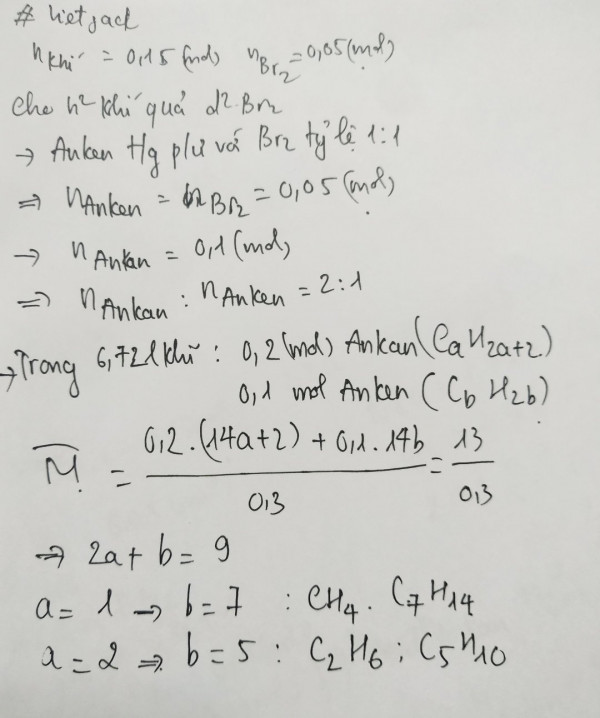 # Vietjack
n khí = 0,15 (mol) nBr2 = 0,05 (mol)
Cho h² khí qua d² Br2
→ Anken t/g p/ư vá Br2 tỷ lệ 1:1
⇒ nAnken = nBr2 = 0,05 (mol)
→ nAnkan = 0,1 (mol)
⇒ nAnkan : nAnken = 2:1
→ Trong 6,72l khí : 0,2 (mol) Ankan (CaH2a+2)
0,1 mol Anken (CbH2b)
M = 0,2.(14a+2) + 0,1.14b / 0,3 = 13 / 0,3
⇒ 2a + b = 9
a = 1 → b = 7 : CH4 . C7H14
a = 2 ⇒ b = 5 : C2H6 ; C5H10